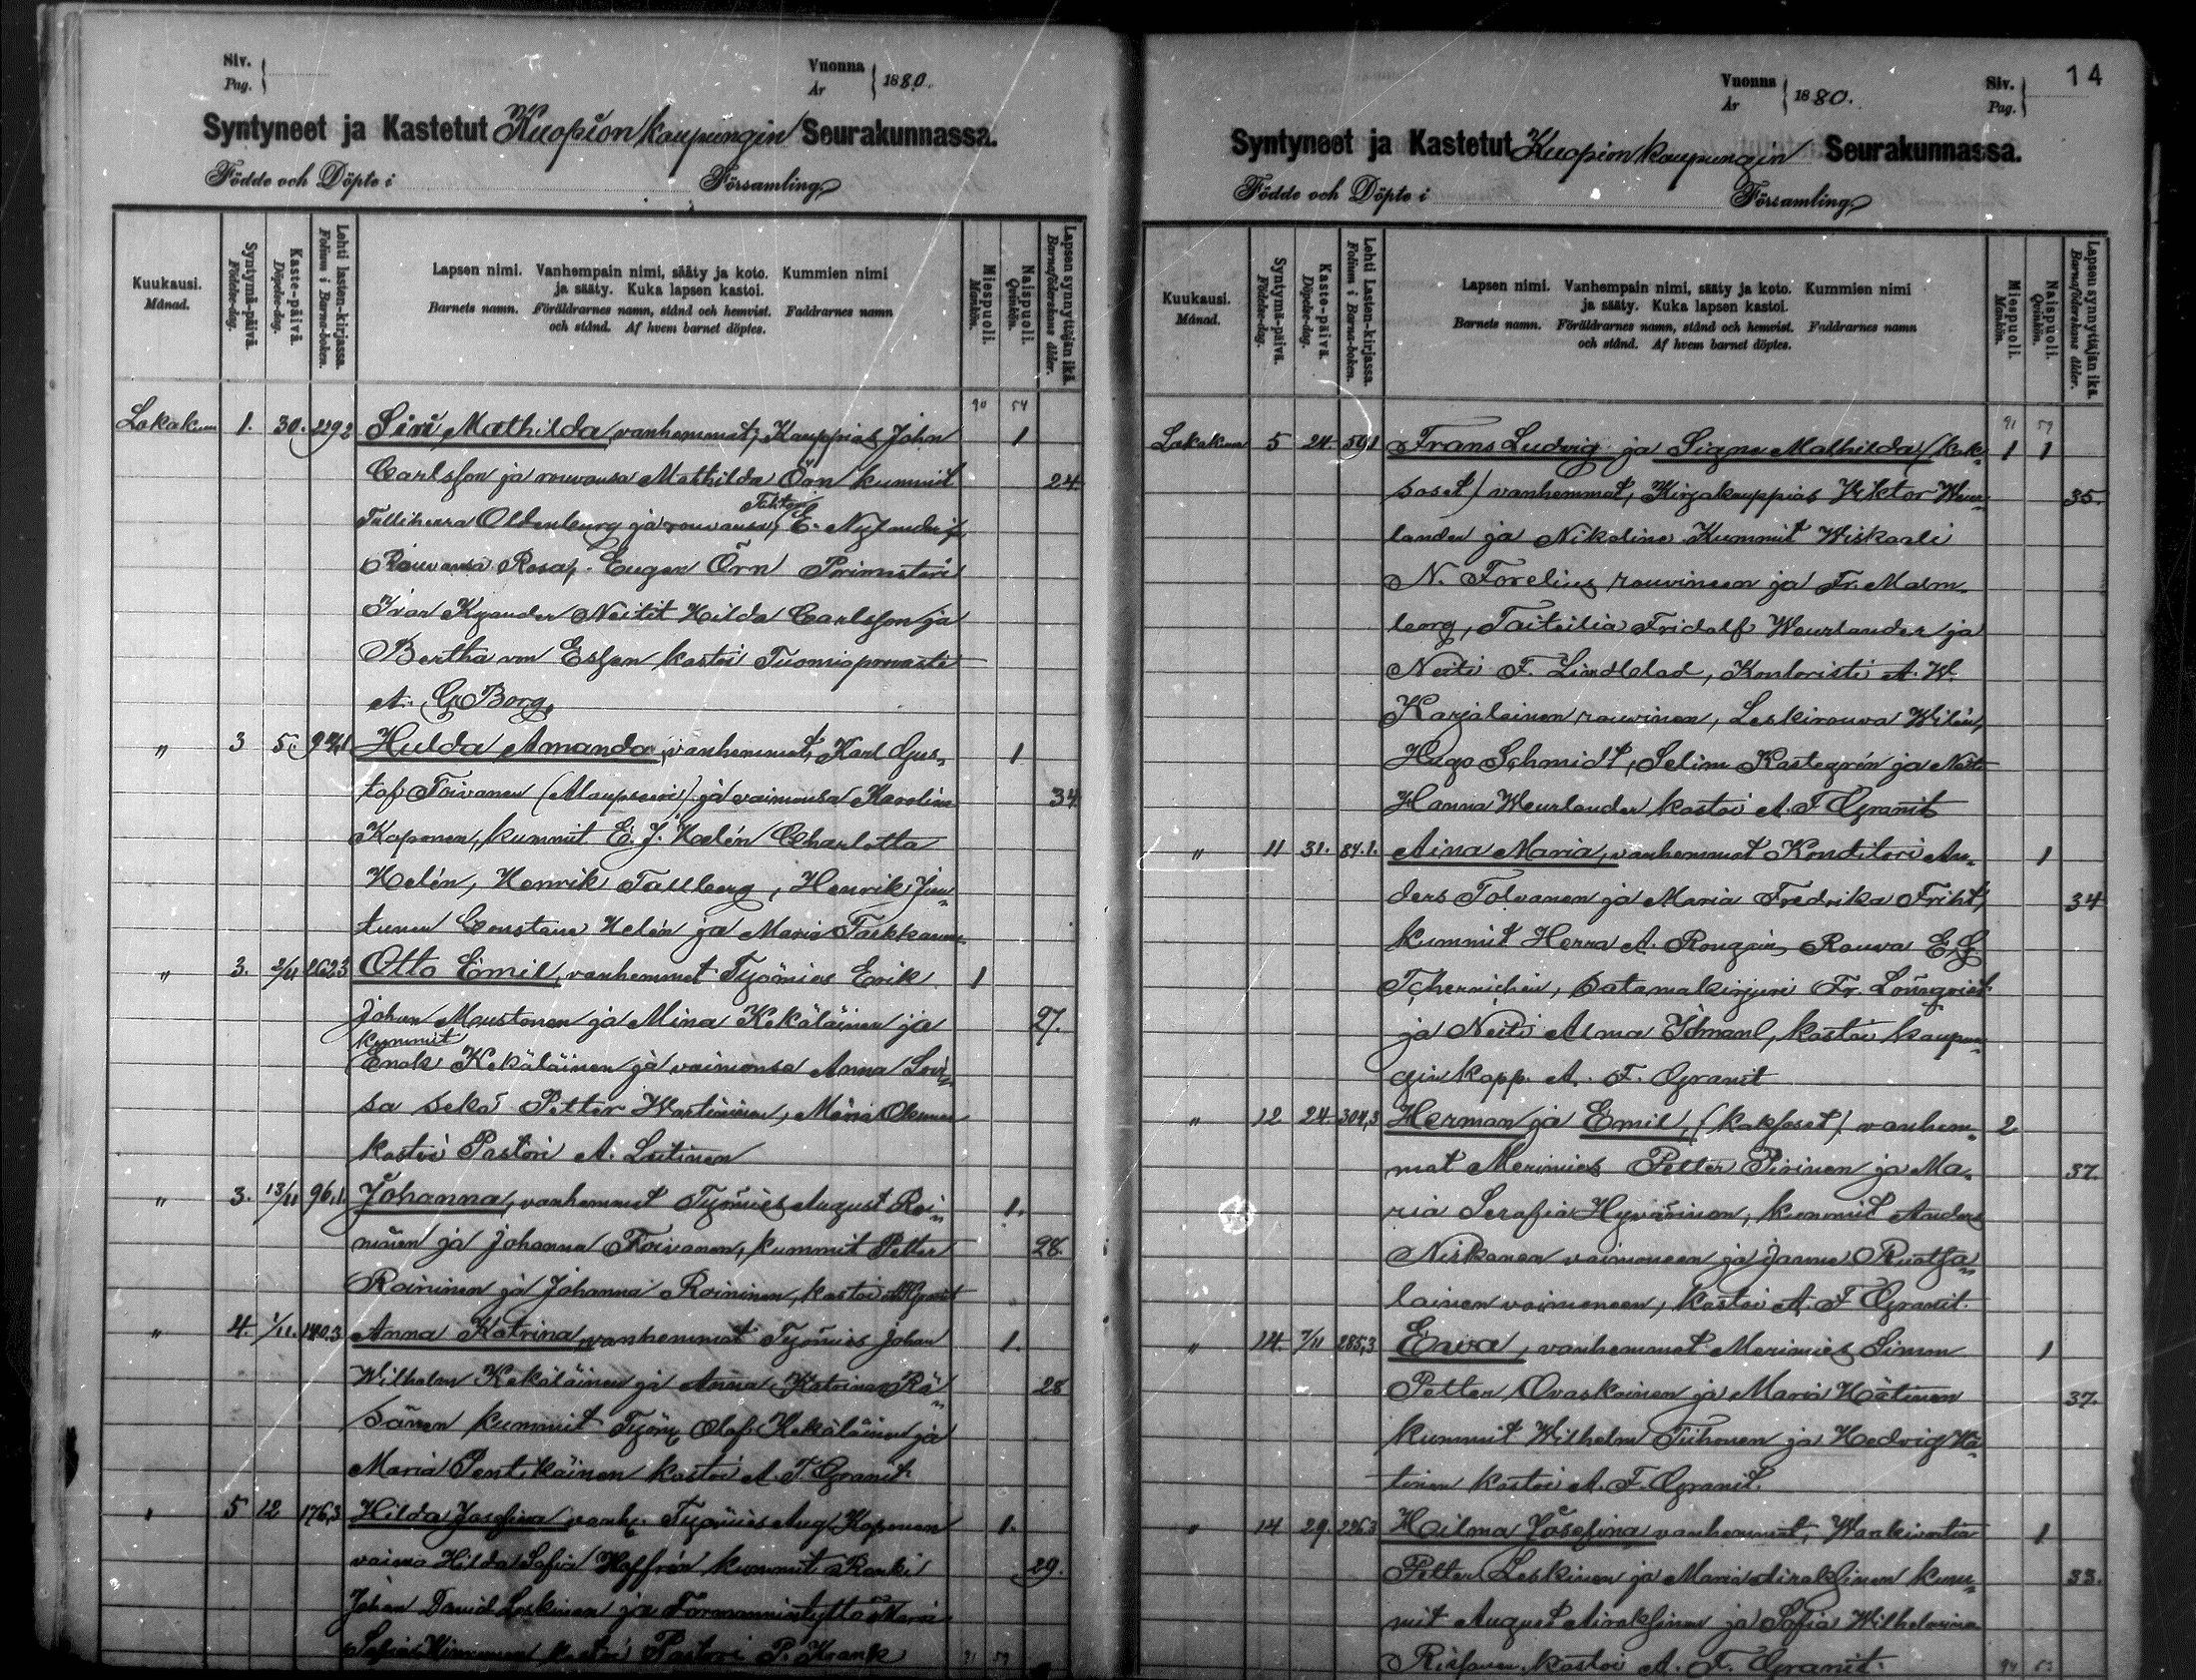 Siv.
Pag.
Vuonna
År
1880.
Syntyneet ja Kastetut Kuopion kaupungin Seurakunnassa.
Födde och Döpte i Församling
Kuukausi.
Månad.
Syntymä-päivä.
Födelse-dag.
Kaste-päivä.
Döpelse-dag.
Lehti lasten-kirjassa.
Folium i Barna-boken.
Lapsen nimi. Vanhempain nimi, sääty ja koto. Kummien nimi
ja sääty. Kuka lapsen kastoi.
Barnets namn. Föräldrarnes namn, stånd och hemvist. Faddrarnes namn
och stånd. Af hvem barnet döptes.
Miespuoli.
Mankön.
Naispuoli.
Qvinkön.
Lapsen synnyttäjän ikä.
Barnaföderskans ålder.
90 54
Lokakuu 1. 30. 229 2 Siri Mathilda, vanhemmat, Kauppias John 1
Carlsson ja rouvansa Mathilda Örn kummit 24
Tulliherra Oldenburg ja rouvansa, E. Nylander ja
Rouvansa Rosa, Eugen Örn
Ivar Kyander Neitit Hilda Carlsson ja
Bertha von Essen kastoi Tuomioprovasti
A. G. Borg.
" 3 5. 94,1 Hulda Amanda, vanhemmat, Karl Gus-
1
taf Toivanen ja vaimonsa Karolina 34
Koponen, kummit E. J. Helén Charlotta
Helén, Henrik Tallberg, Henrik Jun-
tunen Helén ja Maria
" 3. 2/11 162 3 Otto Emil, vanhemmat Työmies Erik 1
Johan Mustonen ja Mina Kekäläinen ja 27.
kummit
Enok Kekäläinen ja vaimonsa Anna Lovi-
sa sekä Petter Maria
kastoi Pastori A.
" 3. 13/11 96,1. Johanna, vanhemmat Työmies August Roi- 1.
ninen ja Johanna Toivanen, kummit Petter 28.
Roininen ja Johanna Roininen, kastoi
" 4. 1/11. 140,3 Anna Katrina, vanhemmat Työmies Johan 1.
Wilhelm Kekäläinen ja Anna Katrina Rä- 28
sänen kummit Työm. Olof Kekäläinen ja
Maria Pentikäinen kastoi A. F. Granit.
" 5 12 176,3 Hilda Josefina vanh. Työmies Aug. Koponen 1.
vaimo Hilda Sofia Hoffrén kummit Renki 29.
Johan David Leskinen ja Maria
Sofia kastoi Pastori P. Krank
91 59
14
Vuonna
År
1880.
Siv.
Pag.
Syntyneet ja Kastetut Kuopion kaupungin Seurakunnassa.
Födde och Döpte i Församling
Kuukausi.
Månad.
Syntymä-päivä.
Födelse-dag.
Kaste-päivä.
Döpelse-dag.
Lehti Lasten-kirjassa.
Folium i Barna-boken.
Lapsen nimi. Vanhempain nimi, sääty ja koto. Kummien nimi
ja sääty. Kuka lapsen kastoi.
Barnets namn. Föräldrarnes namn, stånd och hemvist. Faddrarnes namn
och stånd. Af hvem barnet döptes.
Miespuoli.
Mankön.
Naispuoli.
Qvinkön.
Lapsen synnyttäjän ikä.
Barnaföderskans ålder.
91 59
Lokakuu 5 24 59,1 Frans Ludvig ja Signe Mathilda (kak- 1 1
soset) vanhemmat, Kirjakauppias Viktor Weur- 35.
lander ja Nikoline Kummit Wiskaali
N. Forelius rouvineen ja Fr. Malm-
berg, Taiteilia Fridolf Weurlander ja
Neiti F. Lindblad, Kontoristi A. W.
Karjalainen rouvineen, Leskirouva Wilén,
Hugo Schmidt, Selim Kastegrén ja Neiti
Hanna Weurlander kastoi A. F. Granit
" 11 31. 84.1. Aina Maria, vanhemmat Konditori An- 1
ders Tolvanen ja Maria Fredrika Friht, 34
kummit Herra A. Rouva E. G.
Tschernichin, Satamakirjuri Fr. Lönnqvist
ja Neiti Alma Idman, kastoi kaupun-
gin kapp. A. F. Granit
" 12 24. 304,3 Herman ja Emil, (kaksoset) vanhem- 2
mat Merimies Petter Piirinen ja Ma- 37.
ria Serafia Hyvärinen, kummit Anders
Niskanen vaimoneen ja Janne Ruotsa-
lainen vaimoneen, kastoi A. F. Granit.
" 14. 7/11 285,3 Eewa, vanhemmat Merimies Simon 1
Petter Ovaskainen ja Maria Hätinen 37.
kummit Wilhelm Tiihonen ja Hedvig Hä-
tinen kastoi A. F. Granit.
" 14 29. 226 3 Hilma Josefina vanhemmat, Wankivartia 1
Petter Leskinen ja Maria Airaksinen kum- 33.
mit August Airaksinen ja Sofia Wilhelmina
Rissanen kastoi A. F. Granit.